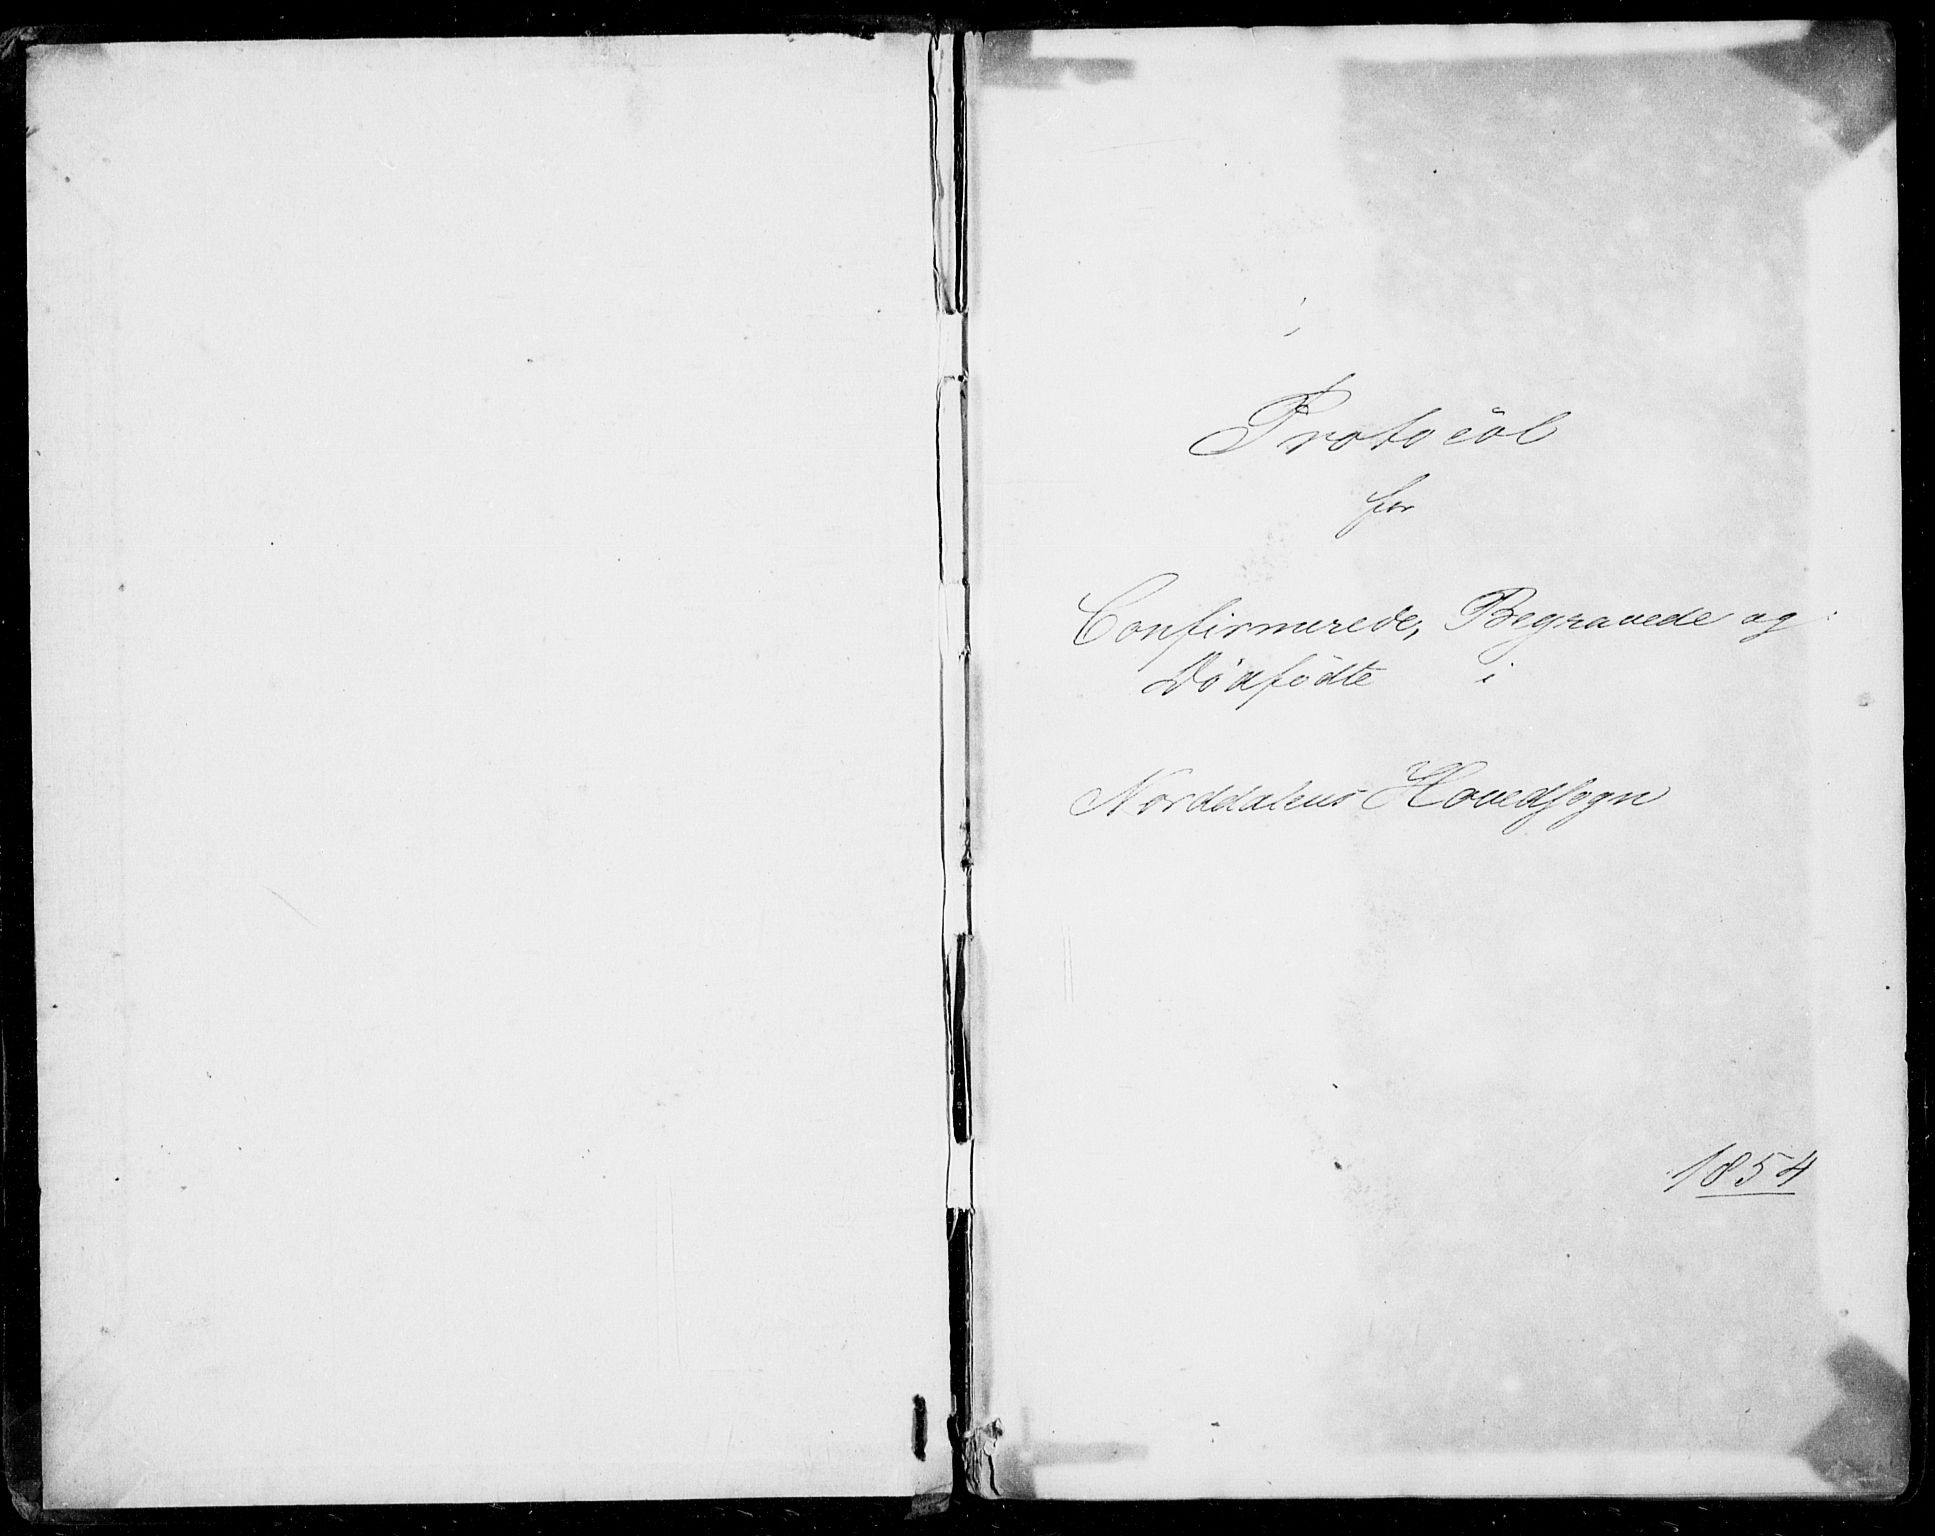 Protocol
for
Confirmerede, Begravede og
Dødfødte i
Norddalens Hovedsogn
1854